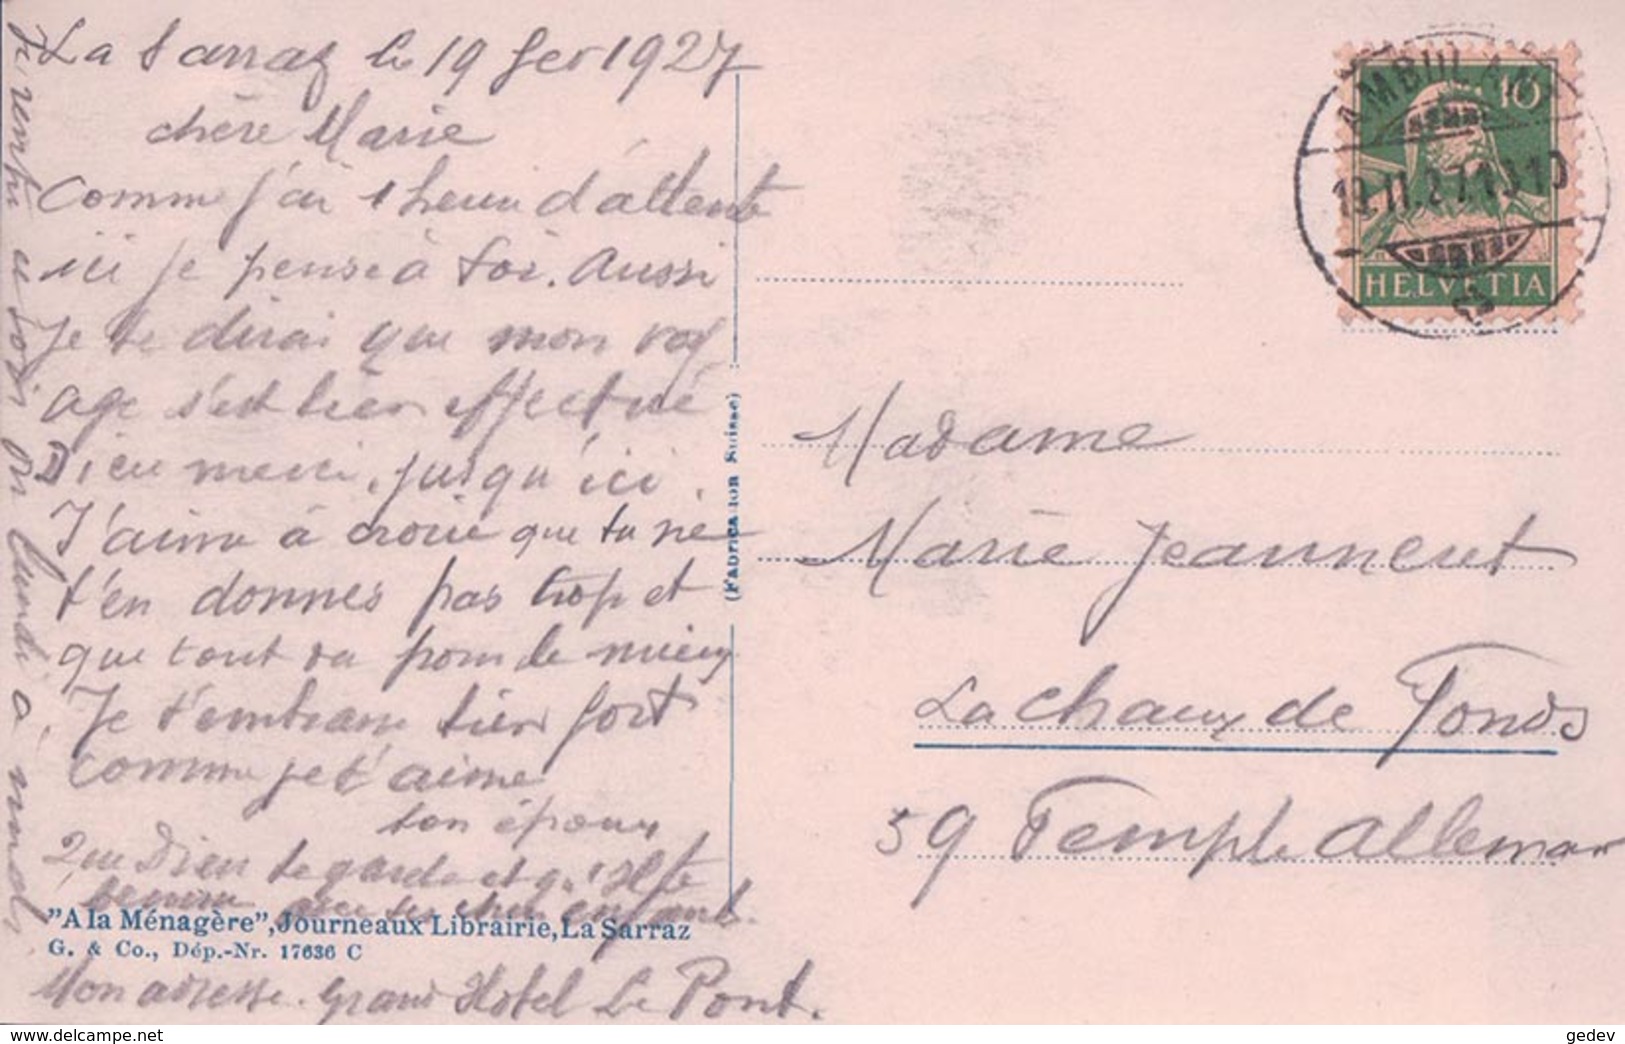 La Sarraz le 19 fev 1927
chère Marie
Comme j'ai 1 heure d'attente
ici je pense à toi. Aussi
je te dirai que mon voy
age s'est bien effectué
Dieu merci, jusqu'ici.
J'aime à croire que tu ne
t'en donnes pas trop et
que tout va pour le mieux
Je t'embrasse bien fort
comme je t'aime
ton époux
Que Dieu te garde et qu'Il te
bénisse avec tes chers enfants.
"A la Ménagère", Journeaux Librairie, La Sarraz
G. & Co., Dép.-Nr. 17636 C
Mon adresse. Grand Hôtel Le Pont.
ce soir ou lundi à
(Fabrication Suisse)
AMBULANT
10
HELVETIA
Madame
Marie Jeanneret
La Chaux de Fonds
59 Temple Alleman
www.delcampe.net
gedev